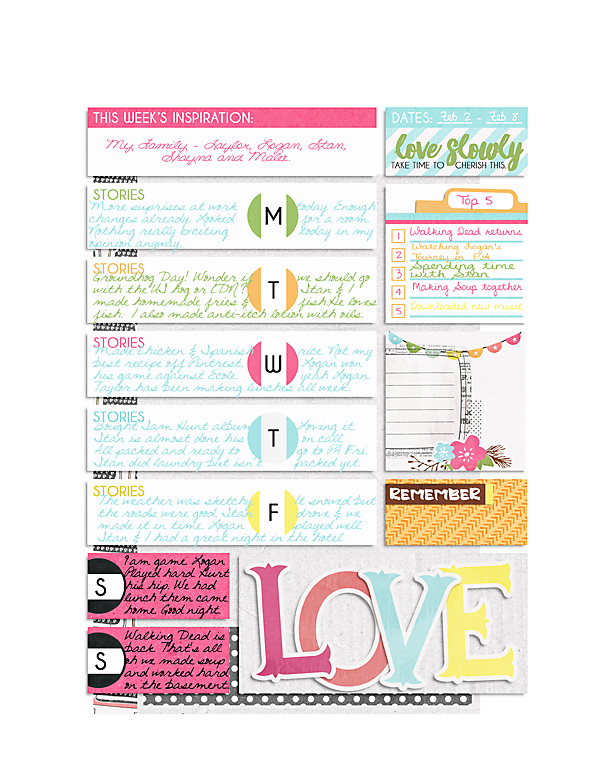 THIS WEEK'S INSPIRATION:
My Family - Taylor, Logan, Stan,
Shayna and Malez.
DATES: Feb 2 - Feb 8
love slowly
TAKE TIME TO CHERISH THIS.
STORIES
More suprises at work today. Enough
changes already. Looked for a room
Nothing really exciting today in my
opinion anyway.
M
Top 5
1 Walking Dead returns
2 Watching Logan's
Journey in P.A
3 Spending time
with Stan
4 Making Soup together
5 Downloaded new music
STORIES
Groundhog Day! Wonder if we should go
with the WI hog or Stan & I
made homemade fries & fish He loves
fish. I also made anti-itch lotion with oils.
T
STORIES
Made Chicken & Spanish rice Not my
best recipe off Pintrest Logan won
his game against Ecole yeah Logan.
Taylor has been making lunches all week.
W
STORIES
Bought Jam Hunt album Loving it
Stan is almost done his on call
All packed and ready to go to PA Fri
Stan did laundry but isn't packed yet.
T
STORIES
The weather was sketchy It snowed but
the roads were good Stan drove & we
made it in time. Logan played well
Stan & I had a great night in the hotel
F
REMEMBER
S
1 am game. Logan
Played hard Hurt
his hip. We had
lunch them came
home Good night.
S
Walking Dead is
back That's all
oh we made soup
and worked hard
on the basement
LOVE